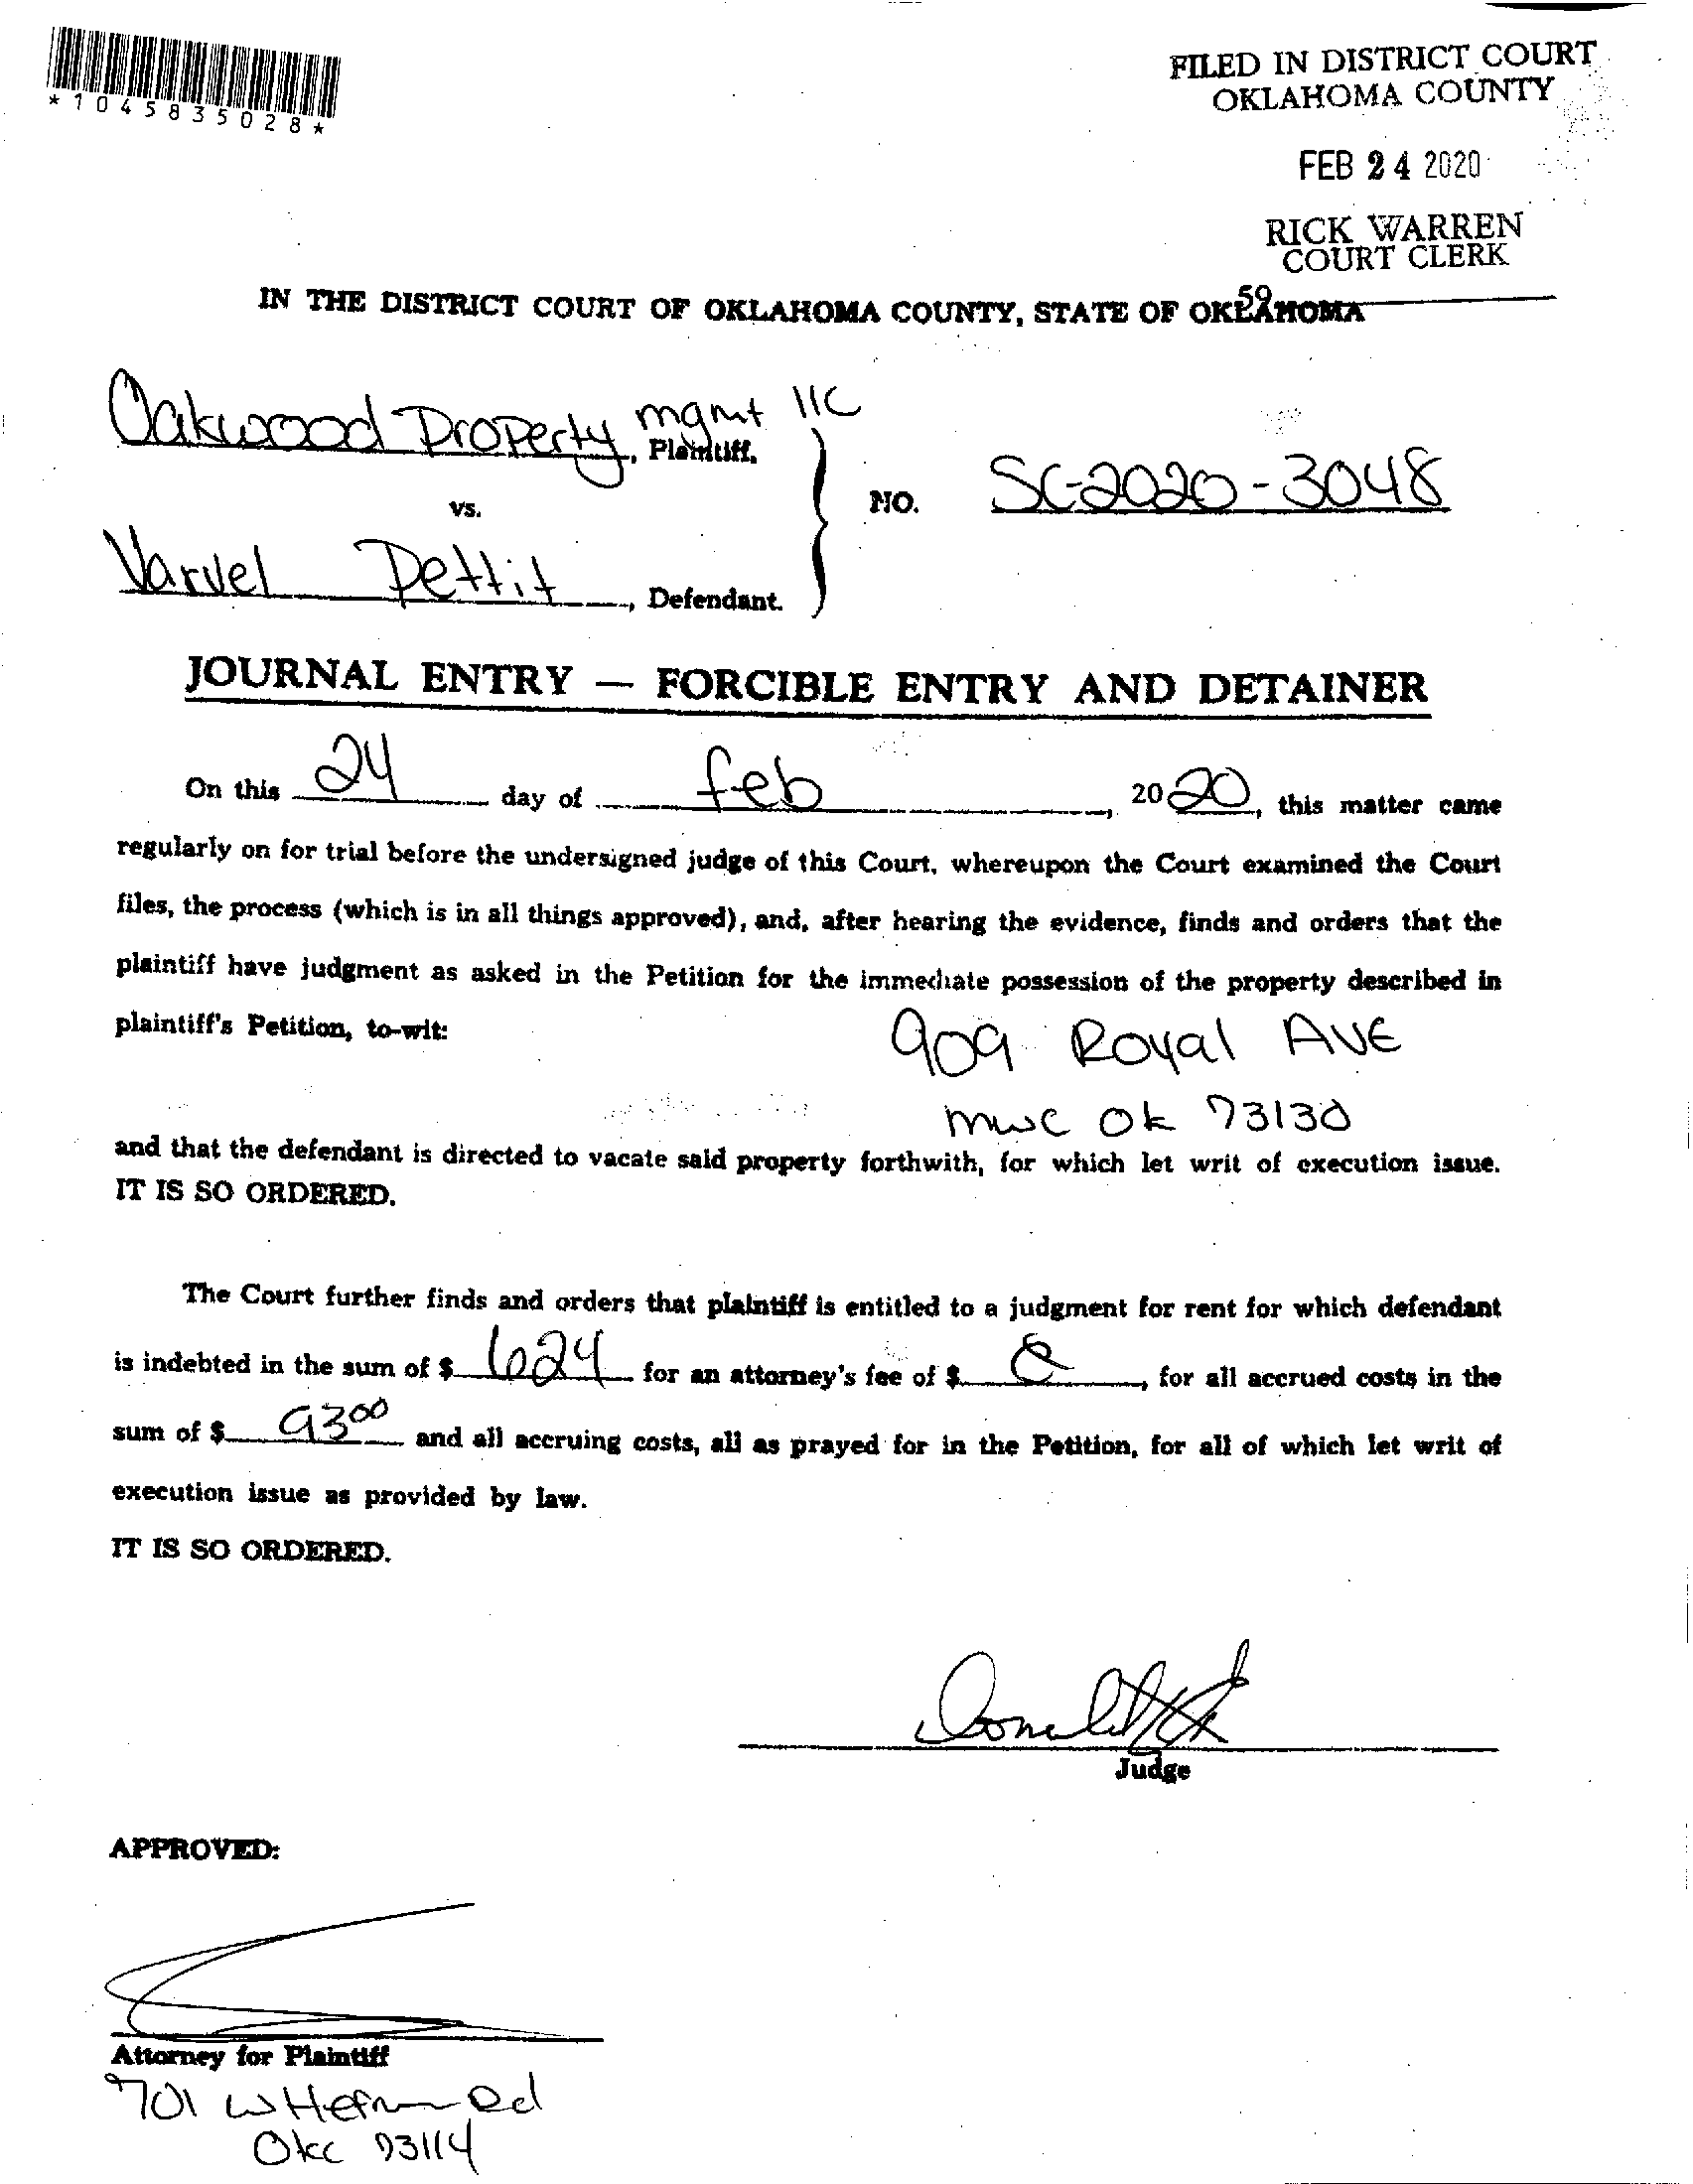 *1045835028*
FILED IN DISTRICT COURT
OKLAHOMA COUNTY
FEB 24 2020
RICK WARREN
COURT CLERK
59
IN THE DISTRICT COURT OF OKLAHOMA COUNTY, STATE OF OKLAHOMA
Oakwood Property mgmt llc
, Plaintiff,
vs.
NO. SC-2020-3048
Varvel Pettit, Defendant.
JOURNAL ENTRY — FORCIBLE ENTRY AND DETAINER
On this 24 day of feb, 2020, this matter came
regularly on for trial before the undersigned judge of this Court, whereupon the Court examined the Court
files, the process (which is in all things approved), and, after hearing the evidence, finds and orders that the
plaintiff have judgment as asked in the Petition for the immediate possession of the property described in
plaintiff's Petition, to-wit: 909 Royal AVE
mwc Ok 73130
and that the defendant is directed to vacate said property forthwith, for which let writ of execution issue.
IT IS SO ORDERED.
The Court further finds and orders that plaintiff is entitled to a judgment for rent for which defendant
is indebted in the sum of $ 624 for an attorney's fee of $, for all accrued costs in the
sum of $ 9300 and all accruing costs, all as prayed for in the Petition, for all of which let writ of
execution issue as provided by law.
IT IS SO ORDERED.
Judge
APPROVED:
Attorney for Plaintiff
701 W Hefner Rd
Okc 73114